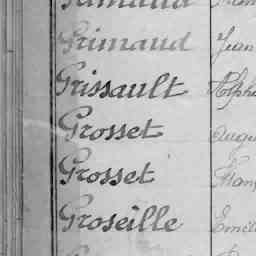 Grimaud Jean
Grissault Alpho
Grosset Augu
Grosset
Groseille Emil